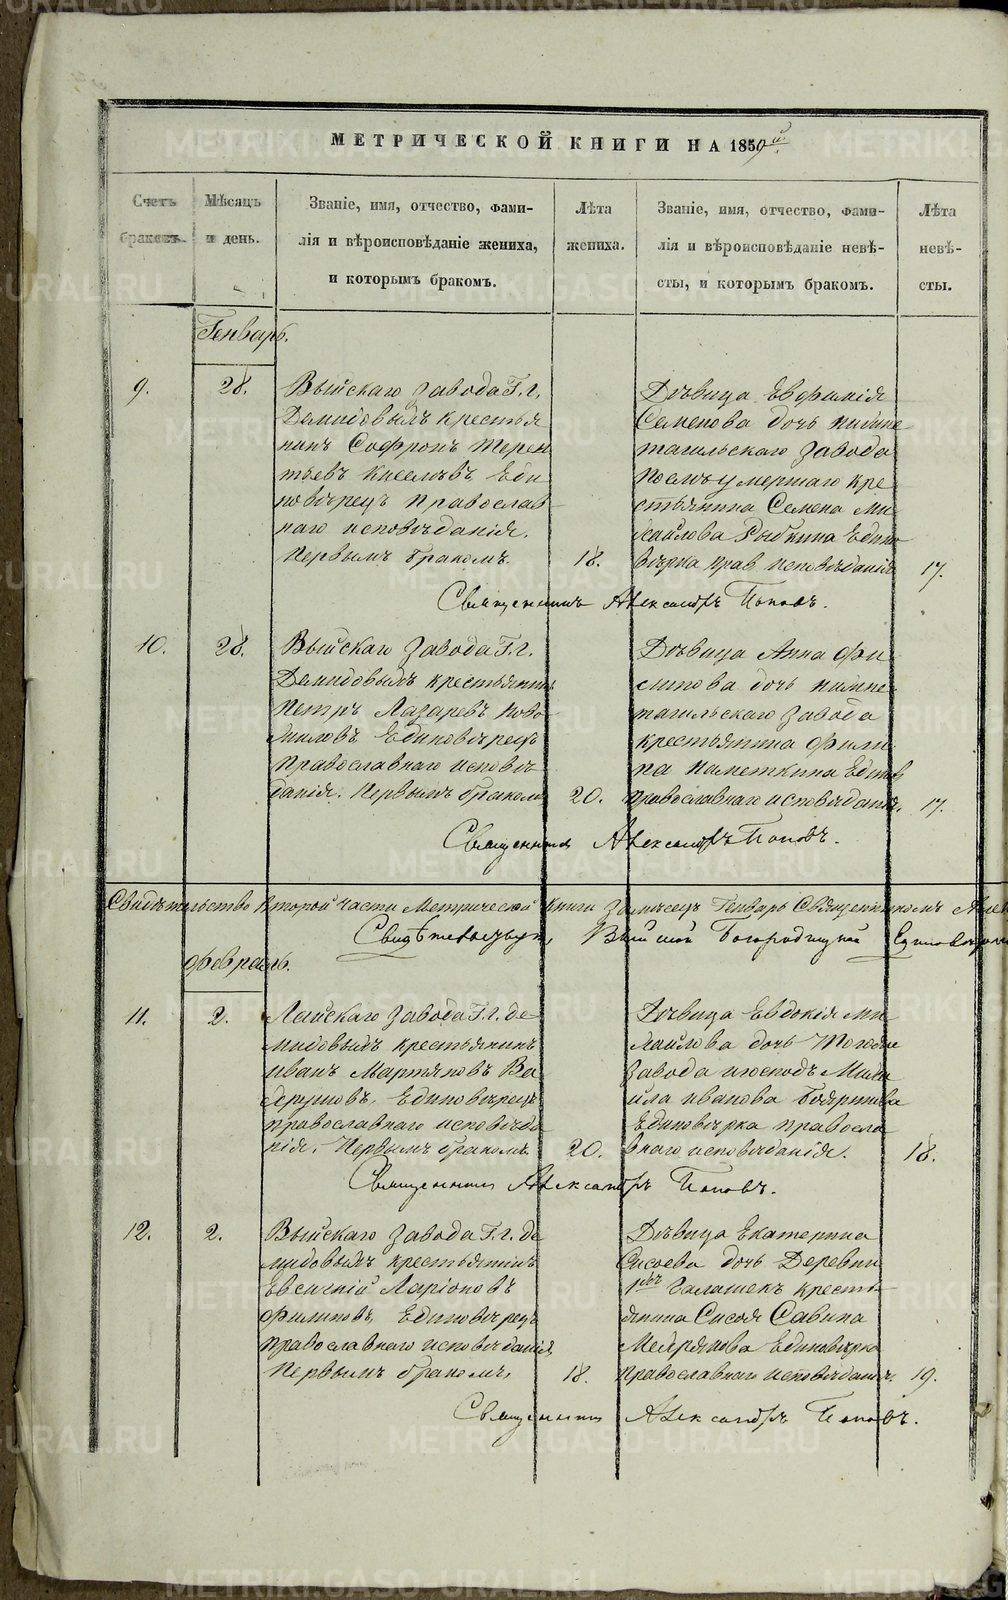 МЕТРИЧЕСКОЙ КНИГИ НА 1859й
Счетъ браковъ.
Мѣсяцъ и день.
Званіе, имя, отчество, фами-
лія и вѣроисповѣданіе жениха,
и которымъ бракомъ.
Лѣта
жениха.
Званіе, имя, отчество, фами-
лія и вѣроисповѣданіе невѣ-
сты, и которымъ бракомъ.
Лѣта
невѣ-
сты.
Генварь.
9.
28.
Выйскаго завода Г.г.
Демидовыхъ крестья
нинъ Софронъ Терен
тьевъ Еди
новѣрецъ православ
наго исповѣданія.
Первымъ бракомъ.
18.
Дѣвица Евфимія
Семенова дочь нижне
тагильскаго завода
послѣ умершаго кре
стьянина Семена Ми
хайлова Рыбкина Едино
вѣрка прав исповѣданія
17.
Священникъ Александръ Поповъ.
10.
28.
Выйскаго завода Г.г.
Демидовыхъ крестьянинъ
Петръ Лазаревъ Ново
жиловъ Единовѣрецъ
православнаго исповѣ
данія. Первымъ бракомъ
20.
Дѣвица Анна Фи
липова дочь нижне
тагильскаго завода
крестьянина Фили
па Единов
православнаго исповѣданія.
17.
Священникъ Александръ Поповъ.
Свидѣтельство Второй части Метрической книги за мѣсяцъ Генварь Священникомъ Алек
Свидѣтельствую, Выйской Богородицкой Единовѣрче
Февраль.
11.
2.
Лайскаго завода Г.г. Де
мидовыхъ крестьянинъ
Иванъ Мартяновъ
Единовѣрецъ
православнаго исповѣда
нія. Первымъ бракомъ.
20.
Дѣвица Евдокія Ми
хайлова дочь Тогоже
завода Михаи
ила Иванова
Единовѣрка правосла
внаго исповѣданія.
18.
Священникъ Александръ Поповъ.
12.
2.
Выйскаго завода Г.г. Де
мидовыхъ крестьянинъ
Евсигній Ларіоновъ
Филиповъ, Единовѣрецъ
православнаго исповѣданія
Первымъ бракомъ,
18.
Дѣвица Екатерина
Сисоева дочь Деревни
Галашекъ кресть
янина Сисоя Савина
Единовѣрка
православнаго исповѣданія.
19.
Священникъ Александръ Поповъ.
METRIKI.GASO-URAL.RU